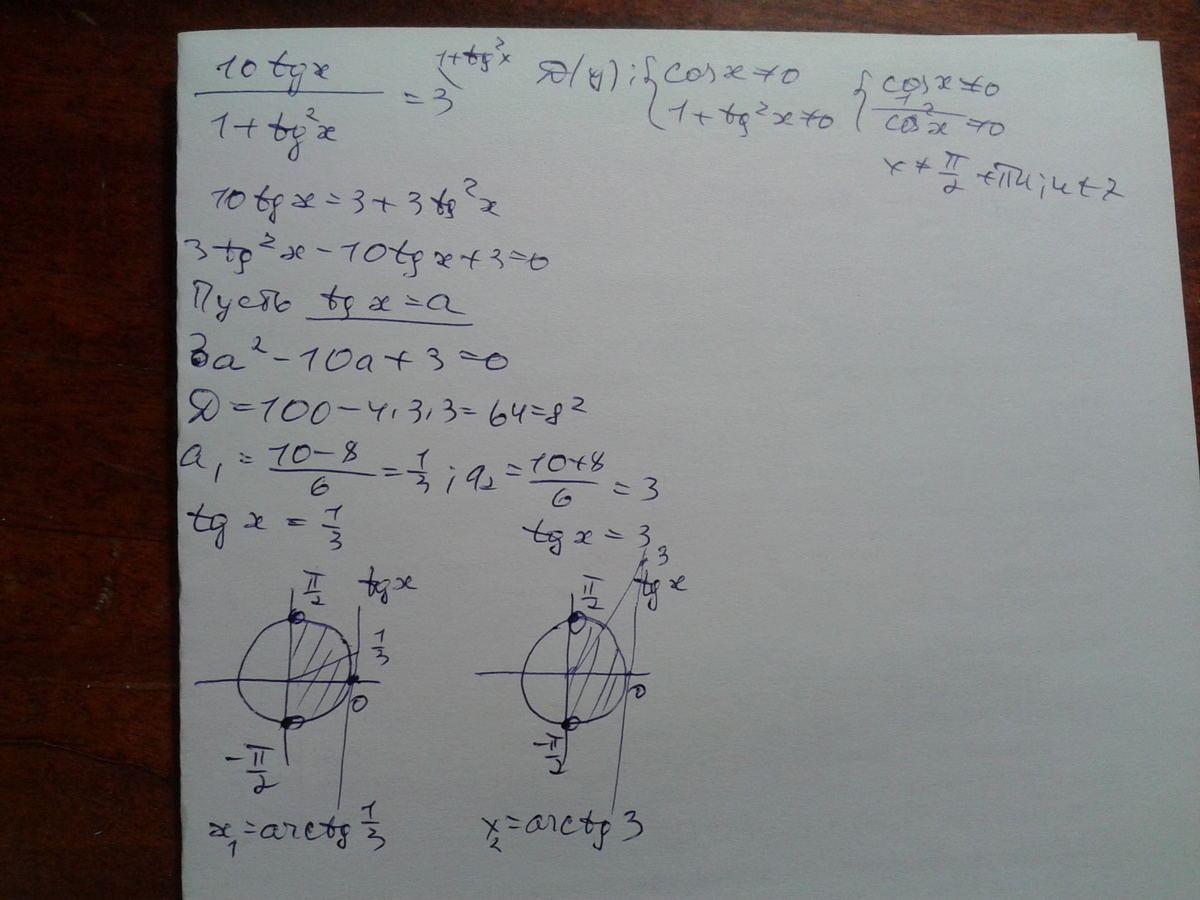 10 tg x / 1 + tg²x = 3 \ 1+tg²x   D(y): { cos x ≠ 0   1 + tg²x ≠ 0   { cos x ≠ 0   1/cos²x ≠ 0
x ≠ π/2 + πn; n ∈ Z
10 tg x = 3 + 3 tg²x
3 tg²x - 10 tg x + 3 = 0
Пусть tg x = a
3a² - 10a + 3 = 0
D = 100 - 4·3·3 = 64 = 8²
a₁ = 10-8/6 = 1/3; a₂ = 10+8/6 = 3
tg x = 1/3   tg x = 3
π/2   tg x   π/2   3   tg x
1/3
0   0
-π/2   -π/2
x₁ = arctg 1/3   x₂ = arctg 3